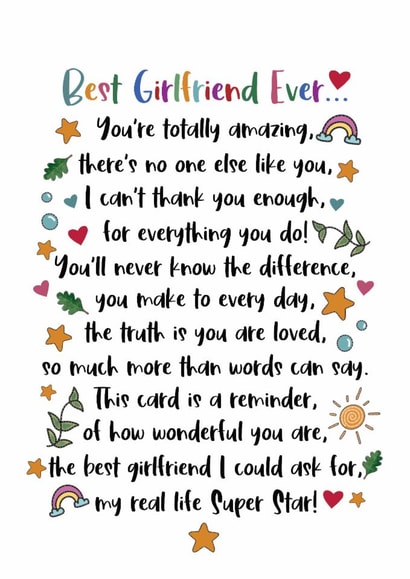 Best Girlfriend Ever...
You're totally amazing,
there's no one else like you,
I can't thank you enough,
for everything you do!
You'll never know the difference,
you make to every day,
the truth is you are loved,
so much more than words can say.
This card is a reminder,
of how wonderful you are,
the best girlfriend I could ask for,
my real life Super Star!